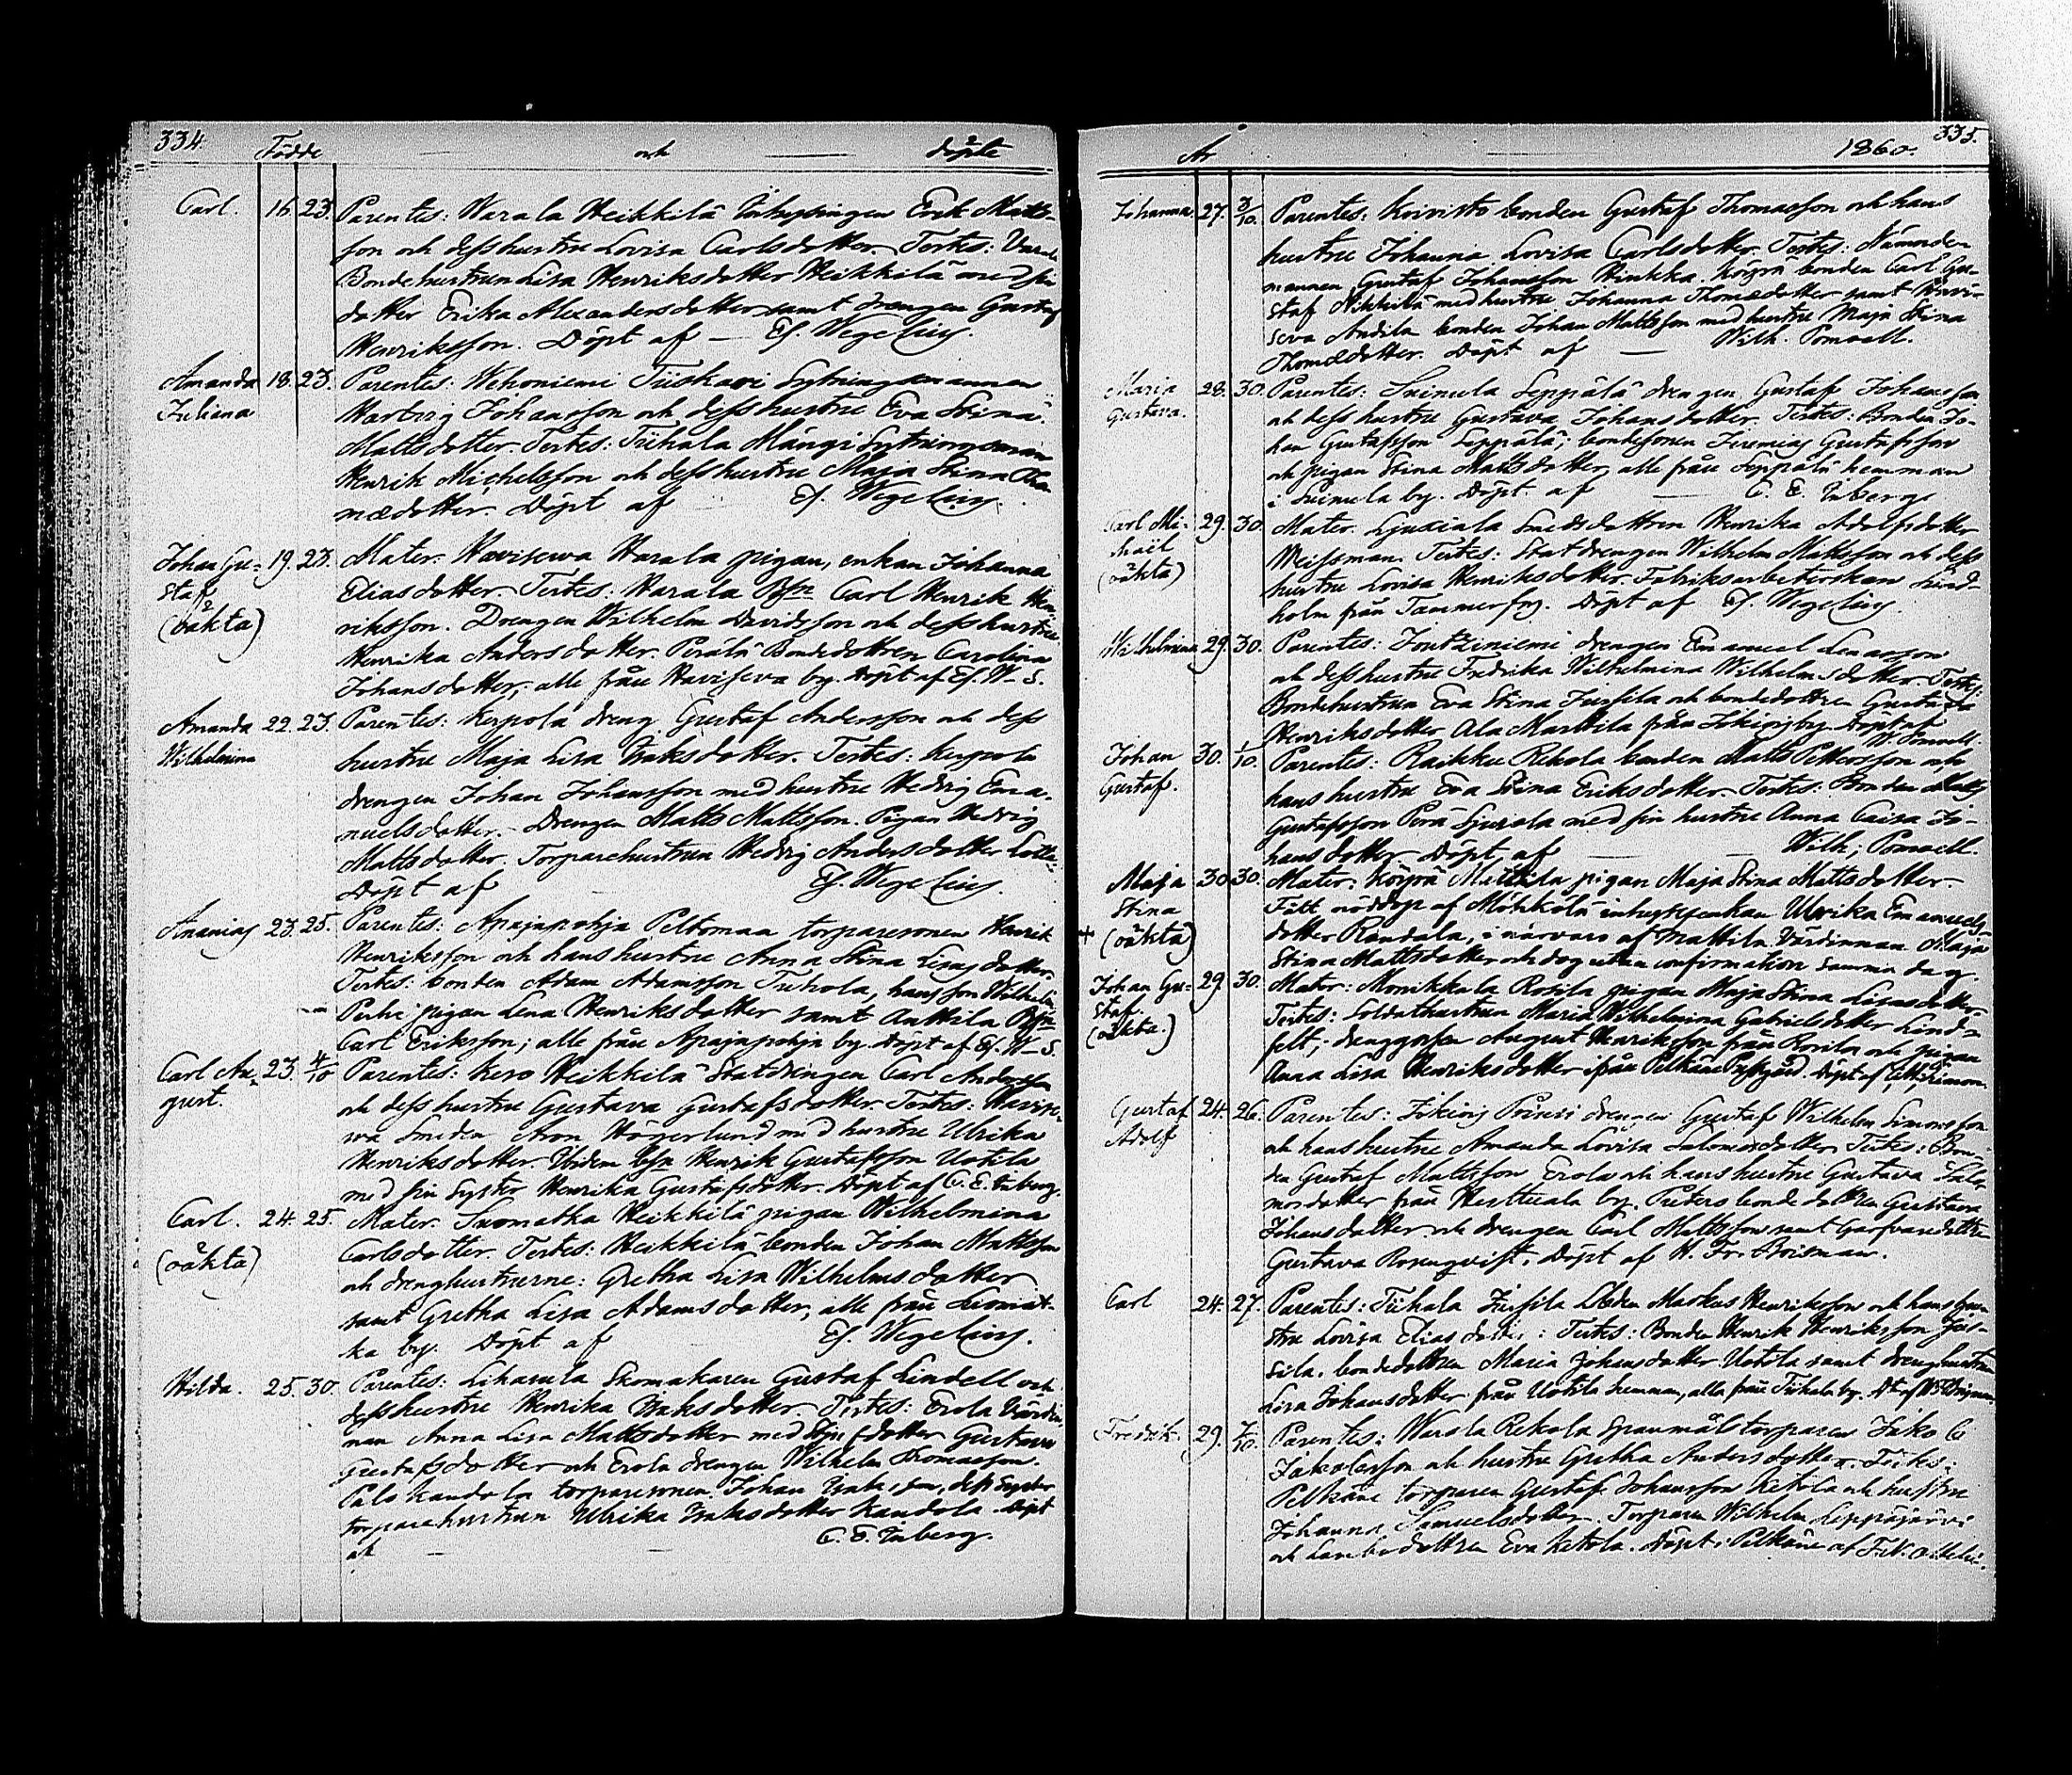 334. Födde — och — döpte
Carl. 16. 23. Parentes: Warala Heikkilä Inhysingen Erik Matts-
son och dess hustru Lovisa Carlsdotter. Testes: Varala
Bondehustrun Lisa Henriksdotter Heikkilä med sin
dotter Erika Alexandersdotter samt drengen Gustaf
Henriksson. Döpt af — Ef. Wegelius.
Amanda 18. 23. Parentes: Wehoniemi Tiiskavi Sytningsmannen
Juliana Hartvig Johansson och dess hustru Eva Stina
Mattsdotter. Testes: Tiihala Mängi Sytningsman
Henrik Michelsson och dess hustru Maja Stina Tho-
mædotter. Döpt af Ef. Wegelius.
Johan Gu- 19. 23. Mater. Havisewa Harala pigan, enkan Johanna
staf Eliasdotter. Testes: Harala Bsn Carl Henrik Hen-
(oäkta) riksson. Drengen Wilhelm Davidsson och dess hustru
Henrika Andersdotter. Perälä Bondedottren Carolina
Johansdotter; alle från Haviseva by. Döpt af Ef. W–s.
Amanda 22. 23. Parentes: Kerpola dreng Gustaf Andersson och dess
Wilhelmina hustru Maja Lisa Isaksdotter. Testes: Kerpola
drengen Johan Johansson med hustru Hedvig Ema-
nuelsdotter. Drengen Matts Mattsson. Pigan Hedvig
Mattsdotter. Torparehustrun Hedvig Andersdotter
Döpt af Ef. Wegelius.
Ananias 23. 25. Parentes: Apajapohja Peltomaa torparesonen Henrik
Henriksson och hans hustru Anna Stina Lisasdotter.
Testes: bonden Adam Adamsson Tuhola, hans son Wilhelm
pigan Lena Henriksdotter samt Anttila Bsn
Carl Eriksson; alle från Apajapohja by. Döpt af Ef. W–s.
Carl Au- 23. 4/10 Parentes: Kero Heikkilä Statdrengen Carl Andersson
gust. och dess hustru Gustava Gustafsdotter. Testes: Havise-
wa Smeden Aron Högerlund med hustru Ulrika
Henriksdotter. Ibidem bsn Henrik Gustafsson Uotila
med sin Syster Henrika Gustafsdotter. Döpt af C. E. Inberg.
Carl. 24. 25. Mater. Suomatka Heikkilä pigan Wilhelmina
(oäkta) Carlsdotter. Testes: Heikkilä bonden Johan Mattsson
och drenghustrurne: Gretha Lisa Wilhelmsdotter
samt Gretha Lisa Adamsdotter, alle från Suomat-
ka by. Döpt af Ef. Wegelius.
Hilda. 25. 30. Parentes: Lihasula Skomakaren Gustaf Lindell och
dess hustru Henrika Isaksdotter. Testes: Erola Värdin-
nan Anna Lisa Mattsdotter med Gustava
Gustafsdotter och Erola drengen Wilhelm Thomasson.
Palo Kandola torparesonen Johan Isaksson, dess Syster
torparehustrun Ulrika Isaksdotter Kandola. Döpt
af — — C. E. Inberg.
335.
År — 1860.
Johanna 27. 3/10. Parentes: Koivisto bonden Gustaf Thomasson och hans
hustru Johanna Lovisa Carlsdotter. Testes: Nämnde-
mannen Gustaf Johansson Hinkka. Köyrä bonden Carl Gu-
staf Nikkilä med hustru Johanna Thomædotter samt Havi-
seva Andila bonden Johan Mattsson med hustru Maja Stina
Thomædotter. Döpt af — Wilh. Ponsell.
Maria 28. 30. Parentes: Suinula Seppälä drengen Gustaf Johansson
Gustava. och dess hustru Gustava Johansdotter. Testes: Bonden Jo-
han Gustafsson Seppälä; bondesonen Jeremias Gustafsson
och pigan Stina Mattsdotter, alle från Seppälä hemman
i Suinula by. Döpt af — C. E. Inberg
Carl Mi- 29. 30. Mater. Liuxiala Smedsdottren Henrika Adolfsdotter
chaël Meissman. Testes: Statdrengen Wilhelm Mattsson och dess
(oäkta) hustru Lovisa Henriksdotter. Fabriksarbeterskan Lind-
holm från Tammerfors. Döpt af Ef. Wegelius.
Wilhelmina 29. 30. Parentes: Joutziniemi drengen Emanuel Lenasson
och dess hustru Fredrika Wilhelmina Wilhelmsdotter. Testes:
Bondehustrun Eva Stina Jussila och bondedottren Gustava
Henriksdotter Ala Marttila från Jokioisby. Döpt af
W. Ponsell.
Johan 30. 1/10. Parentes: Raikku Rekola bonden Matts Pettersson och
Gustaf. hans hustru Eva Stina Eriksdotter. Testes: Bonden Matts
Gustafsson Perä Sjurola med sin hustru Anna Caisa Jo-
hansdotter. Döpt af — — Wilh. Ponsell.
Maja 30. 30. Mater: Köyrä Mattila pigan Maja Stina Mattsdotter.
Stina Fått nöddop af Mätikkälä inhysesenkan Ulrika Emanuels-
+ (oäkta) dotter Randala, i närvaro af Mattila Värdinnan Maja
Stina Mattsdotter och dog utan confirmation samma dag.
Johan Gu- 29. 30. Mater: Monikkala Rosila pigan Maja Stina Lisasdotter.
staf. Testes: Soldathustrun Maria Wilhelmina Gabrielsdotter Lind-
(oäkta.) felt; drenggossen August Henriksson från Rosila och pigan
Anna Lisa Henriksdotter från Pelkäne Prestgård. Döpt af
Gustaf 24. 26. Parentes: Jokiois Prinsi drengen Gustaf Wilhelm Simonsson
Adolf och hans hustru Amanda Lovisa Salomonsdotter. Testes: Bon-
den Gustaf Mattsson Erola och hans hustru Gustava Salo-
monsdotter från Herttuala by. bondedottren Gustava
Johansdotter och drengen Carl Mattsson samt Garfvaredottren
Gustava Rosenqvist. Döpt af
Carl 24. 27. Parentes: Tiihala Jussila Markus Henriksson och hans hu-
stru Lovisa Eliasdotter: Testes: Bonden Henrik Henriksson Jus-
sila, bondedottren Maria Johansdotter Uotila samt drenghustrun
Lisa Johansdotter från Uotila hemman, alla från Tiihala by.
Fredrik. 29. Parentes: Warala Rekola Spanmåls torparen Jakob
Jakobsson och hustru Gretha Andersdotter. Testes:
Pelkäne torparen Gustaf Johansson Ketola och hustru
Johanna Samuelsdotter. Torparen Wilhelm Leppäjärvi
och dottren Eva Ketola. Döpt i Pelkäne af